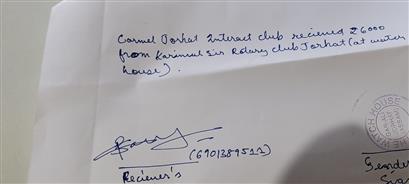 Carmel Jorhat Interact club recieved ₹6000
from Karimul Sir Rotary club Jorhat (at water
house).
(6901389511)
Reciener's